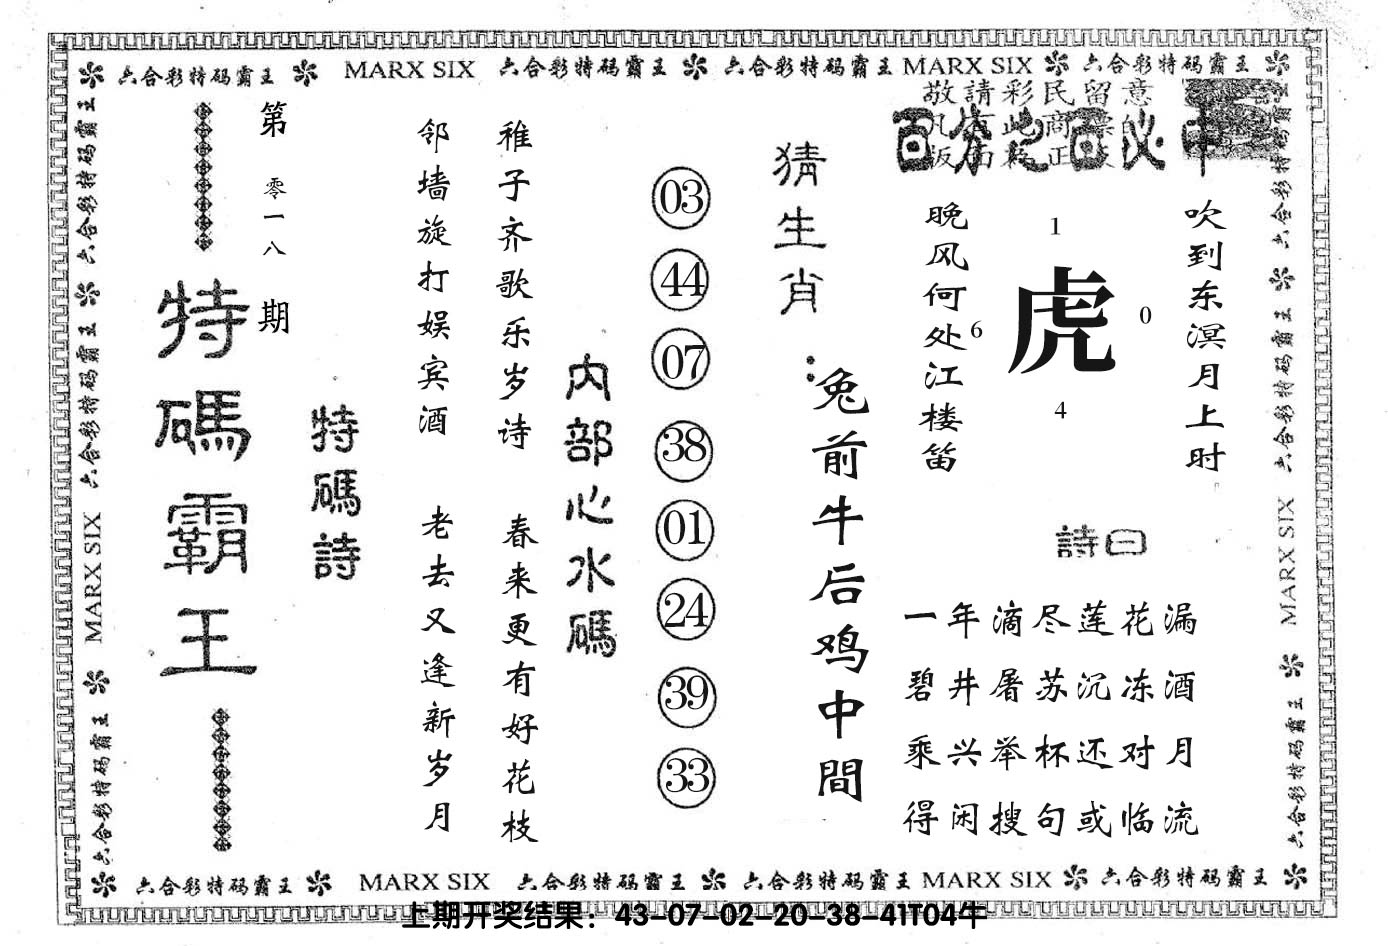 六合彩特码霸王 MARX SIX 六合彩特码霸王 六合彩特码霸王 MARX SIX 六合彩特码霸王
六合彩特码霸王 六合彩特码霸王 MARX SIX 六合彩特码霸王
第零一八期
特碼霸王
特碼詩
邻墙旋打娱宾酒
稚子齐歌乐岁诗
老去又逢新岁月
春来更有好花枝
内部心水碼
03
44
07
38
01
24
39
33
猜生肖:
兔前牛后鸡中間
敬請彩民留意
百分之百必中
晚风何处江楼笛
1
6
虎
0
4
吹到东溟月上时
詩曰
一年滴尽莲花漏
碧井屠苏沉冻酒
乘兴举杯还对月
得闲搜句或临流
六合彩特码霸王 六合彩特码霸王 MARX SIX 六合彩特码霸王
六合彩特码霸王 MARX SIX 六合彩特码霸王 六合彩特码霸王 MARX SIX 六合彩特码霸王
上期开奖结果：43-07-02-20-38-41T04牛